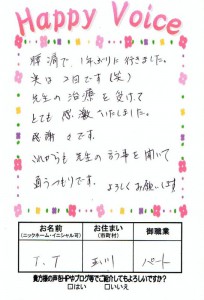 Happy Voice
腰痛で、1年ぶりに行きました。
実は2回目です(笑)
先生の治療を受けて
とても感激いたしました。
感謝々です。
これからも先生の言う事を聞いて
通うつもりです。よろしくお願いします
お名前 お住まい 御職業
(ニックネーム・イニシャル可) (市町村)
T.T 玉川 パート
貴方様の声をHPやブログ等でご紹介してもよろしいですか?
□はい □いいえ